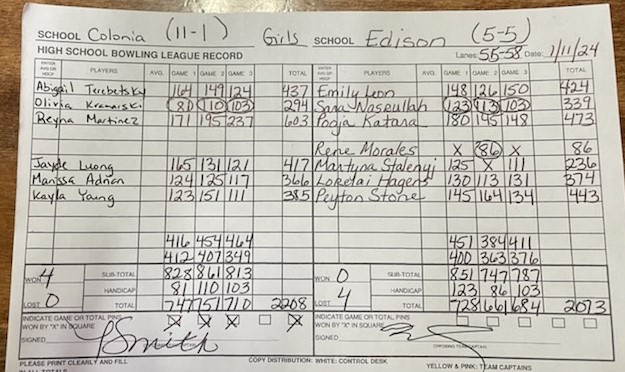 SCHOOL Colonia (11-1) Girls SCHOOL Edison (5-5)
HIGH SCHOOL BOWLING LEAGUE RECORD Lanes 55-58 Date: 1/11/24
ENTER AVG OR HDCP PLAYERS AVG. GAME 1 GAME 2 GAME 3 TOTAL ENTER AVG OR HDCP PLAYERS AVG. GAME 1 GAME 2 GAME 3 TOTAL
Abigail Terebetsky 164 149 124 437 Emily Leon 148 126 150 424
Olivia Kramarski 81 110 103 294 Sara Naseullah 123 113 103 339
Reyna Martinez 171 195 237 603 Pooja Katara 180 145 148 473
Rene Morales X 86 X 86
Jayde Luong 165 131 121 417 Martyna Stalenyj 125 X 111 236
Marissa Adrian 124 125 117 366 Loretai Hagens 130 113 131 374
Kayla Young 123 151 111 385 Peyton Stone 145 164 134 443
416 454 464 451 384 411
412 407 349 400 363 376
WON 4 SUB-TOTAL 828 861 813 WON 0 SUB-TOTAL 851 747 787
HANDICAP 81 110 103 HANDICAP 123 86 103
LOST 0 TOTAL 747 751 710 2208 LOST 4 TOTAL 728 661 684 2073
INDICATE GAME OR TOTAL PINS WON BY "X" IN SQUARE X X X X INDICATE GAME OR TOTAL PINS WON BY "X" IN SQUARE
SIGNED JSmith SIGNED
OPPOSING TEAM CAPTAIN
PLEASE PRINT CLEARLY AND FILL COPY DISTRIBUTION: WHITE: CONTROL DESK YELLOW & PINK: TEAM CAPTAINS